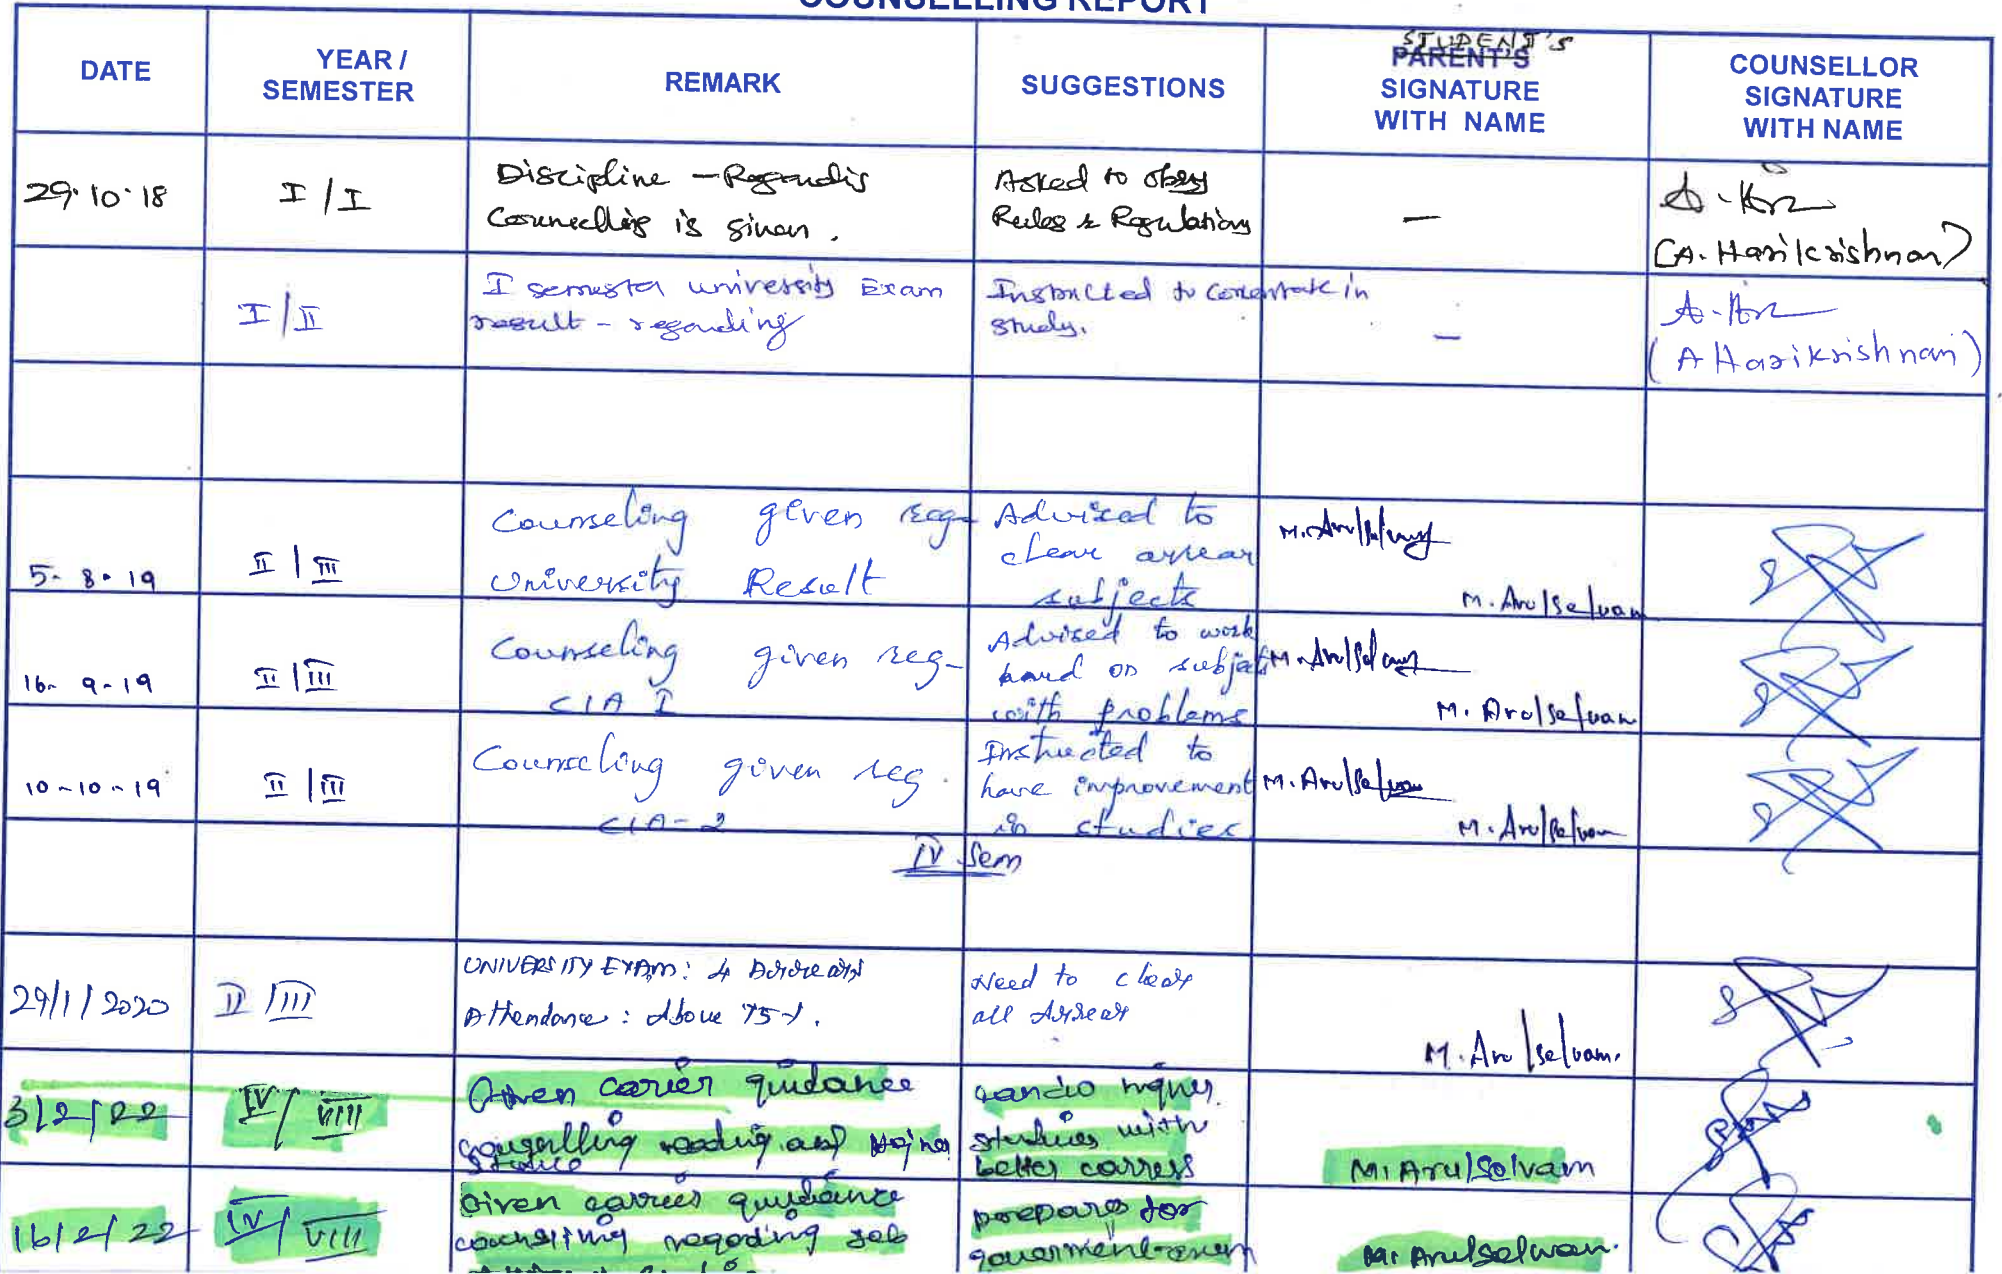 COUNSELLING REPORT
DATE
YEAR /
SEMESTER
REMARK
SUGGESTIONS
STUDENT'S
PARENT'S
SIGNATURE
WITH NAME
COUNSELLOR
SIGNATURE
WITH NAME
29.10.18
I / I
Discipline - Regarding
Counselling is given.
Asked to obey
Rules & Regulations
—
(A. Harikrishnan)
I / II
I semester university Exam
result - regarding
Instructed to concentrate in
study.
—
(A Harikrishnan)
5.8.19
II / III
Counseling given reg-
University Result
Advised to
clear arrear
subjects
M. Arulselvam
16-9-19
II / III
Counseling given reg-
CIA I
Advised to work
hard on subject
with problems
M. Arulselvam
10-10-19
II / III
Counseling given reg.
CIA-2
Instructed to
have improvement
in studies
M. Arulselvam
M. Arulselvam
IV Sem
29/1/2020
II / III
UNIVERSITY EXAM: 4 Arrears
Attendance: Above 75%.
Need to clear
all Arrear
M. Arulselvam.
3/2/22
IV / VIII
Given carier guidance
studies with
better carress
M. Arulselvam
16/2/22
IV / VIII
Given carries guidance
job
prepares for
M. Arulselvam.